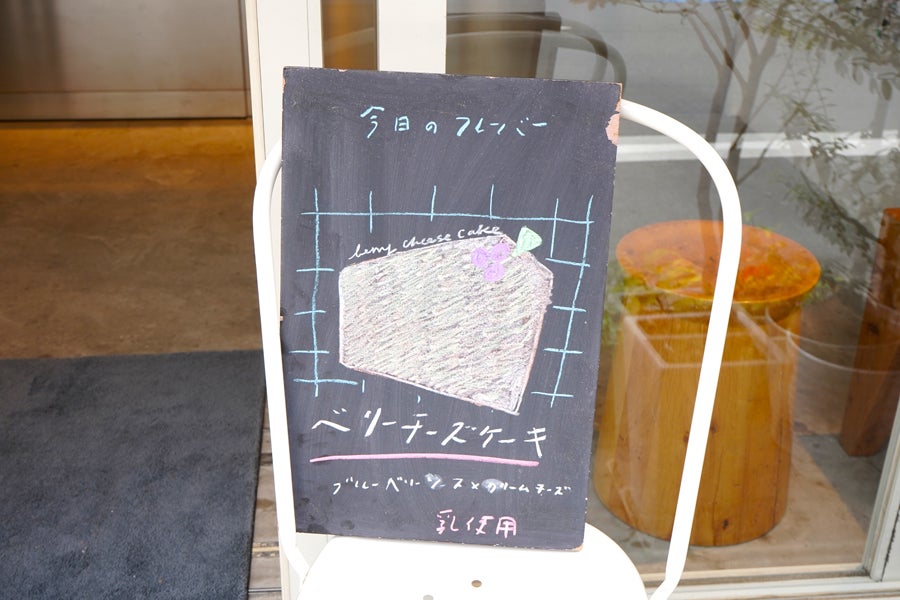 今日のフレーバー
berry cheese cake
ベリーチーズケーキ
ブルーベリーソース×クリームチーズ
乳使用